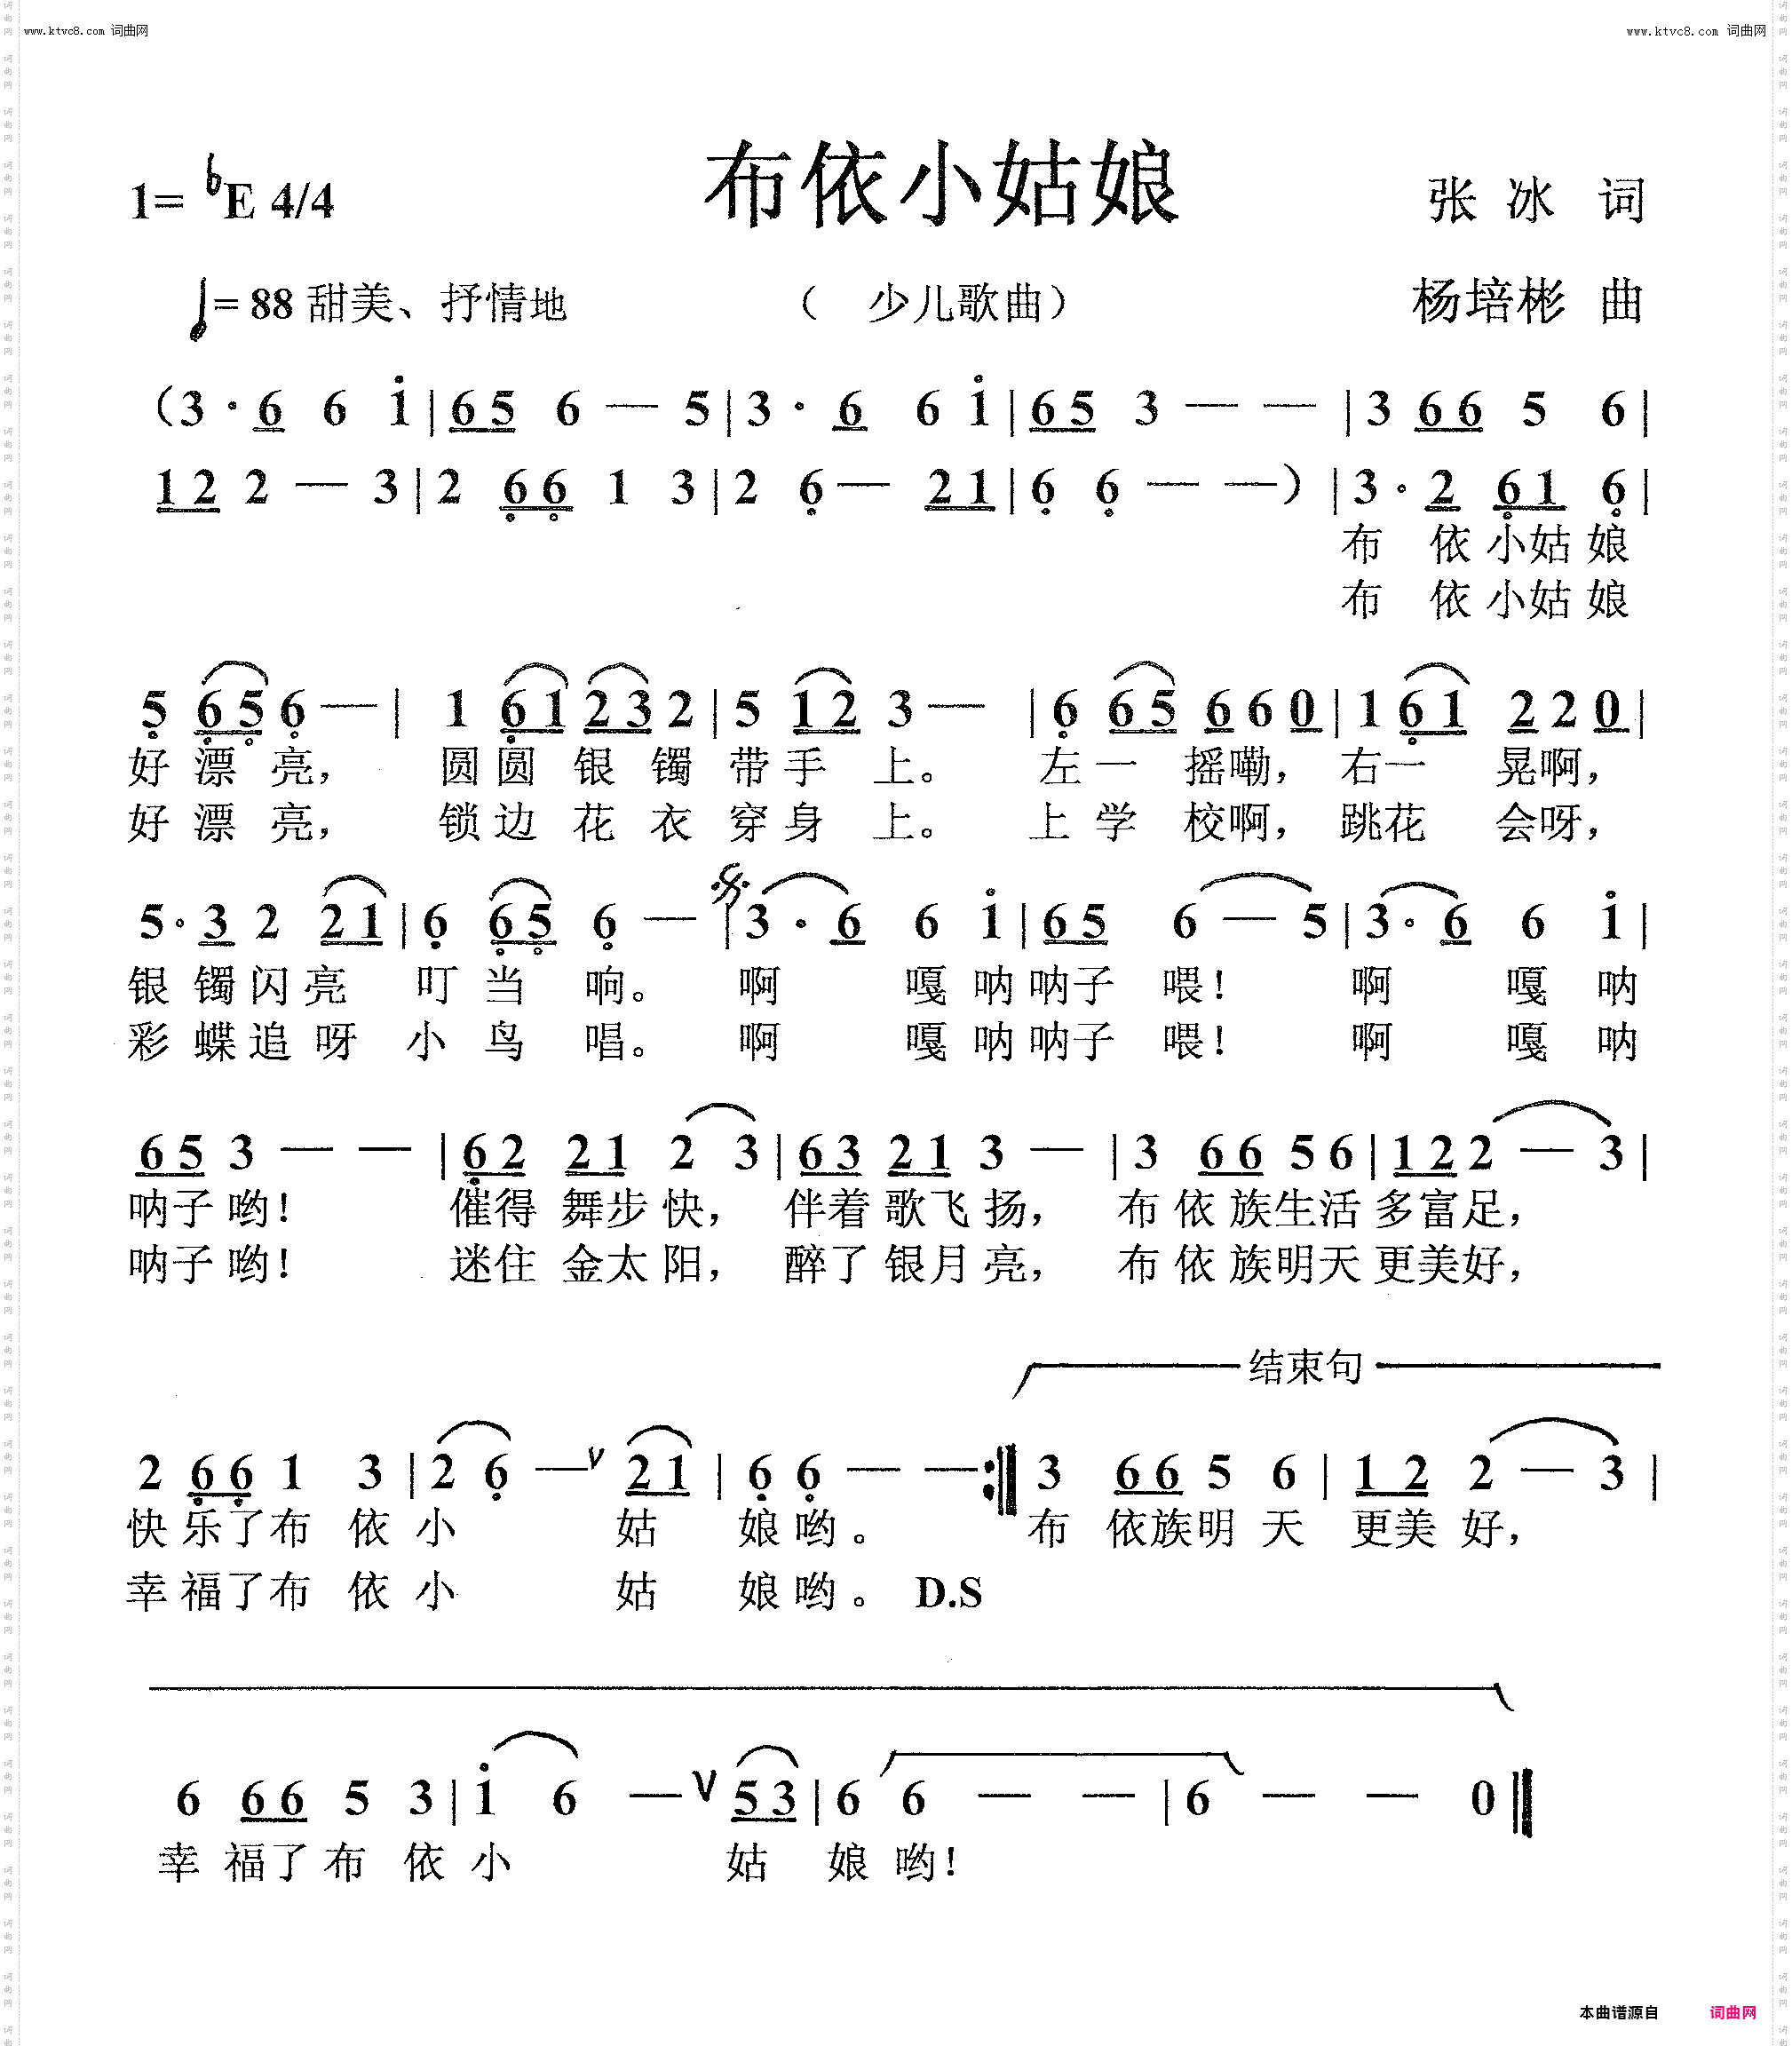 www.ktvc8.com 词曲网
www.ktvc8.com 词曲网
布依小姑娘
1= bE 4/4
张 冰 词
♩= 88 甜美、抒情地
（ 少儿歌曲）
杨培彬 曲
（3 · 6 6 i | 6 5 6 — 5 | 3 · 6 6 i | 6 5 3 — — | 3 6 6 5 6 |
1 2 2 — 3 | 2 6 6 1 3 | 2 6 — 2 1 | 6 6 — — ）| 3 · 2 6 1 6 |
布 依 小姑 娘
布 依 小姑 娘
5 6 5 6 — | 1 6 1 2 3 2 | 5 1 2 3 — | 6 6 5 6 6 0 | 1 6 1 2 2 0 |
好 漂 亮， 圆 圆 银 镯 带 手 上。 左 一 摇嘞， 右一 晃啊，
好 漂 亮， 锁 边 花 衣 穿 身 上。 上 学 校啊， 跳花 会呀，
5 · 3 2 2 1 | 6 6 5 6 — | 3 · 6 6 i | 6 5 6 — 5 | 3 · 6 6 i |
银 镯 闪 亮 叮 当 响。 啊 嘎 呐 呐子 喂！ 啊 嘎 呐
彩 蝶 追 呀 小 鸟 唱。 啊 嘎 呐 呐子 喂！ 啊 嘎 呐
6 5 3 — — | 6 2 2 1 2 3 | 6 3 2 1 3 — | 3 6 6 5 6 | 1 2 2 — 3 |
呐子 哟！ 催得 舞步 快， 伴着 歌飞 扬， 布 依 族生活 多富足，
呐子 哟！ 迷住 金太 阳， 醉了 银月 亮， 布 依 族明天 更美好，
结束句
2 6 6 1 3 | 2 6 — V 2 1 | 6 6 — — :‖ 3 6 6 5 6 | 1 2 2 — 3 |
快 乐了布 依 小 姑 娘哟。 布 依族明 天 更美 好，
幸 福了布 依 小 姑 娘哟。 D.S
6 6 6 5 3 | i 6 — V 5 3 | 6 6 — — | 6 — — 0 ‖
幸 福了 布 依 小 姑 娘 哟！
本曲谱源自 词曲网